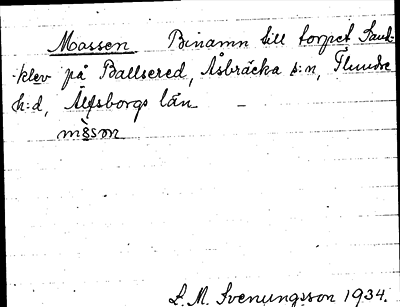 Mossen Binamn till torpet Sand-
klev på Ballsered, Åsbräcka s:n, Flundre
h:d, Älfsborgs län –
mòsøn
L. M. Svenungsson 1934.